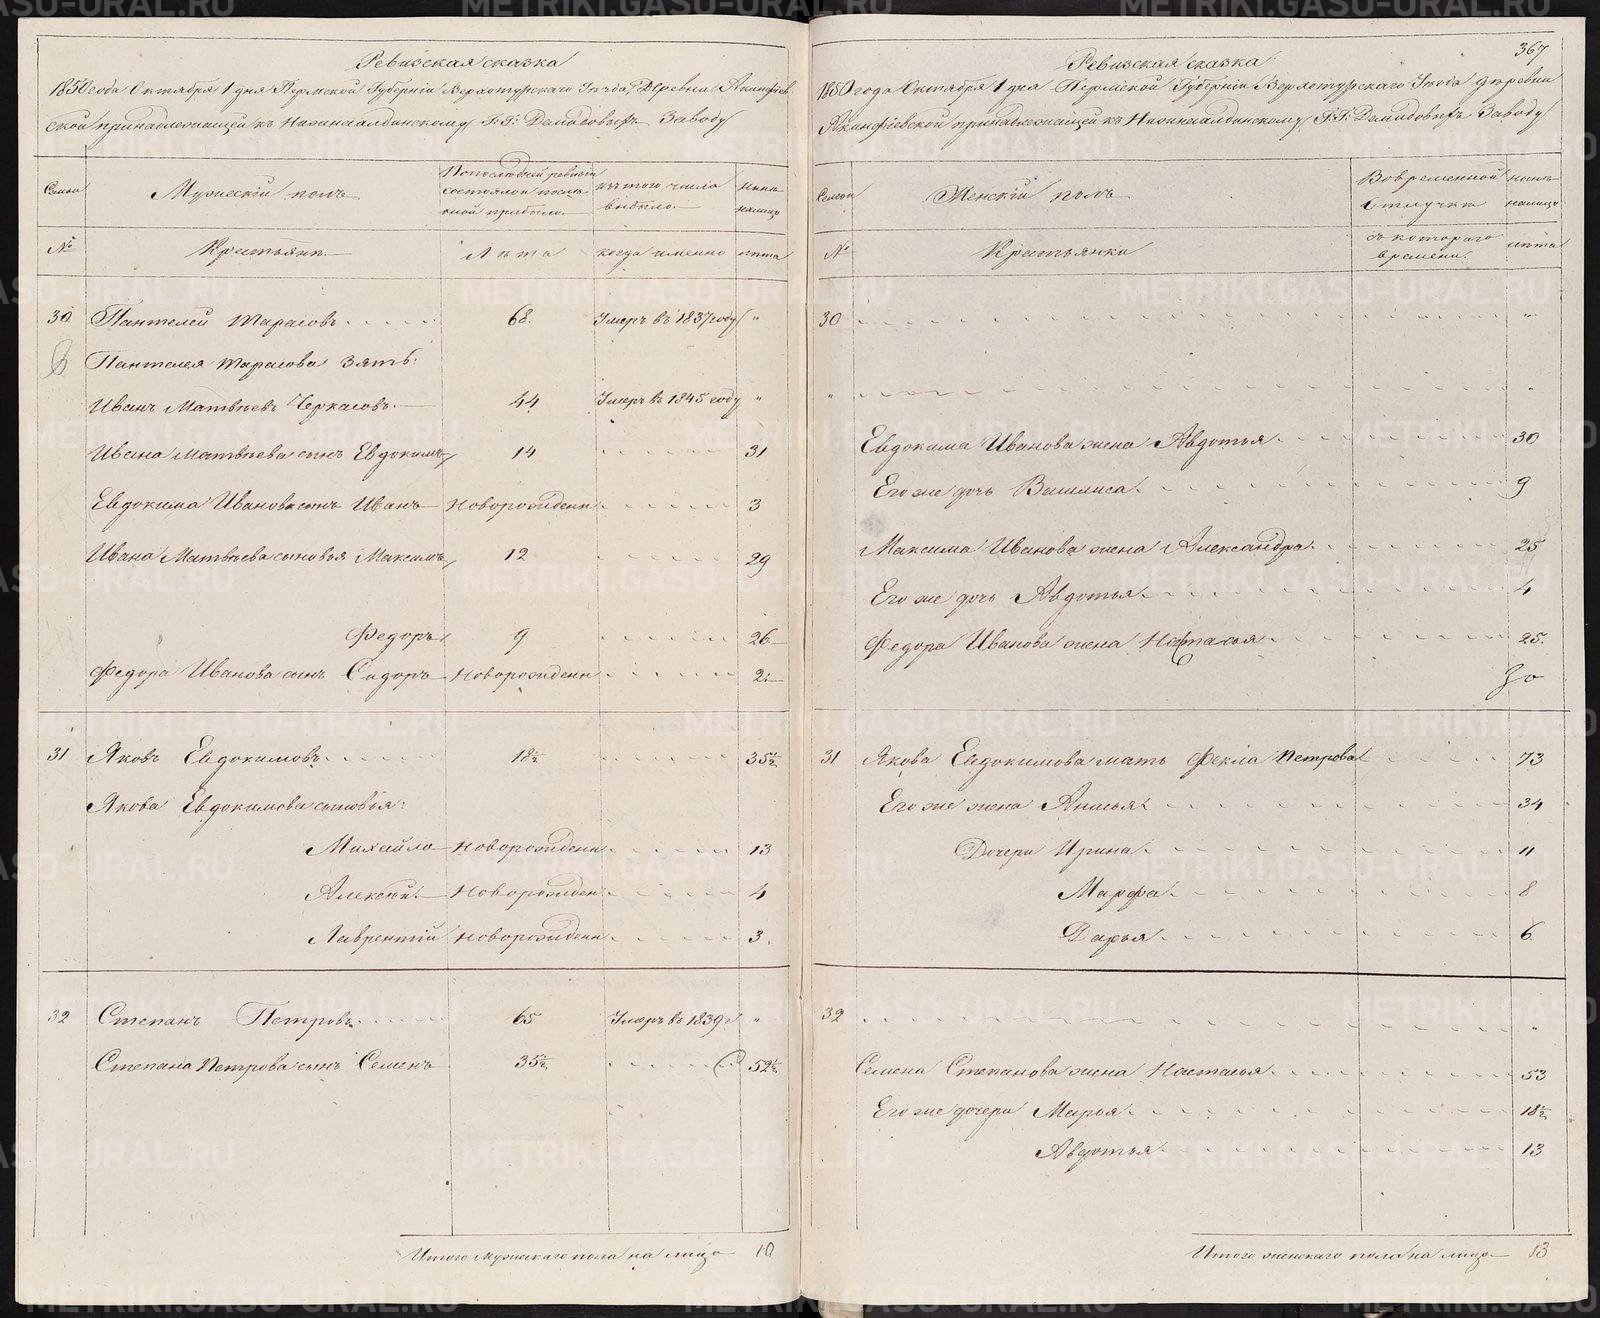 Ревизская сказка
1850 года Октября 1 дня Пермской Губерніи Верхотурскаго Уѣзда, Деревни Акинфіев
ской принадлежащей къ Нижнесалдинскому Г.Г. Демидовыхъ Заводу
Семьи
Мужескій полъ
По последней ревизіи состояло и после оной прибыло
изъ того числа выбыло
нынѣ налицо
№
Крестьянъ
Лѣта
когда именно
лѣта
30 Пантелей Тарасовъ 68. Умеръ въ 1837 году "
Пантелея Тарасова Зять:
Иванъ Матвѣевъ Черкасовъ. 44 Умеръ въ 1845 году "
Ивана Матвѣева сынъ Евдокимъ 14 31
Евдокима Иванова сынъ Иванъ Новорожденн 3
Ивана Матвѣева сыновья Максимъ 12 29
Федоръ 9 26
Федора Иванова сынъ Сидоръ Новорожденн 2
31 Яковъ Евдокимовъ 18½ 35½
Якова Евдокимова сыновія:
Михайло Новорожденн 13
Алексѣй Новорожден 4
Лаврентій Новорожденн 3.
32 Степанъ Петровъ 65 Умеръ въ 1839 г "
Степана Петрова сынъ Семенъ 35½ 52½
Итого мужескаго пола на лицо 10
367
Ревизская сказка
1850 года Октября 1 дня Пермской Губерніи Верхотурскаго Уѣзда деревни
Акинфіевской принадлежащей къ Нижнесалдинскому Г.Г. Демидовыхъ Заводу
Семьи
Женскій полъ
Во временной отлучкѣ
нынѣ налицо
№
Крестьянки
съ котораго времени.
лѣта
30 "
" "
Евдокима Иванова жена Авдотья 30
Его же дочь Василиса 9
Максима Иванова жена Александра 25
Его же дочь Авдотья 4
Федора Иванова жена Настасья 25.
31 Якова Евдокимова мать Фекла Петрова 73
Его же жена Анисья 34
Дочери Ирина 11
Марфа 8
Дарья 6.
32 "
Семена Степанова жена Настасья 53
Его же дочери Марья 18½
Авдотья 13
Итого женскаго пола на лицо 13
METRIKI.GASO-URAL.RU